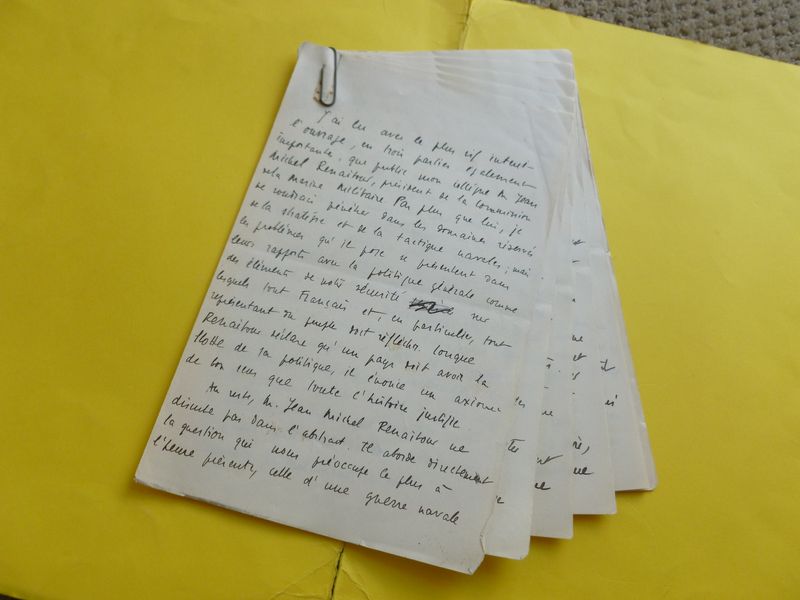 J'ai lu avec le plus vif intérêt
l'ouvrage, en trois parties également
importantes, que publie mon collègue M. Jean
Michel Renaitour, président de la Commission
de la Marine Militaire Pas plus que lui, je
ne voudrais pénétrer dans les domaines réservés
de la stratégie et de la tactique navales; mais
les problèmes qu'il pose se présentent dans
leurs rapports avec la politique générale comme
des éléments de notre sécurité sur
lesquels tout Français et, en particulier, tout
représentant du peuple doit réfléchir. Lorsque
Renaitour déclare qu'un pays doit avoir la
flotte de sa politique, il énonce un axiome
de bon sens que toute l'histoire justifie.
Au reste, M. Jean Michel Renaitour ne
discute pas dans l'abstrait. Il aborde directement
la question qui nous préoccupe le plus à
l'heure présente, celle d'une guerre navale